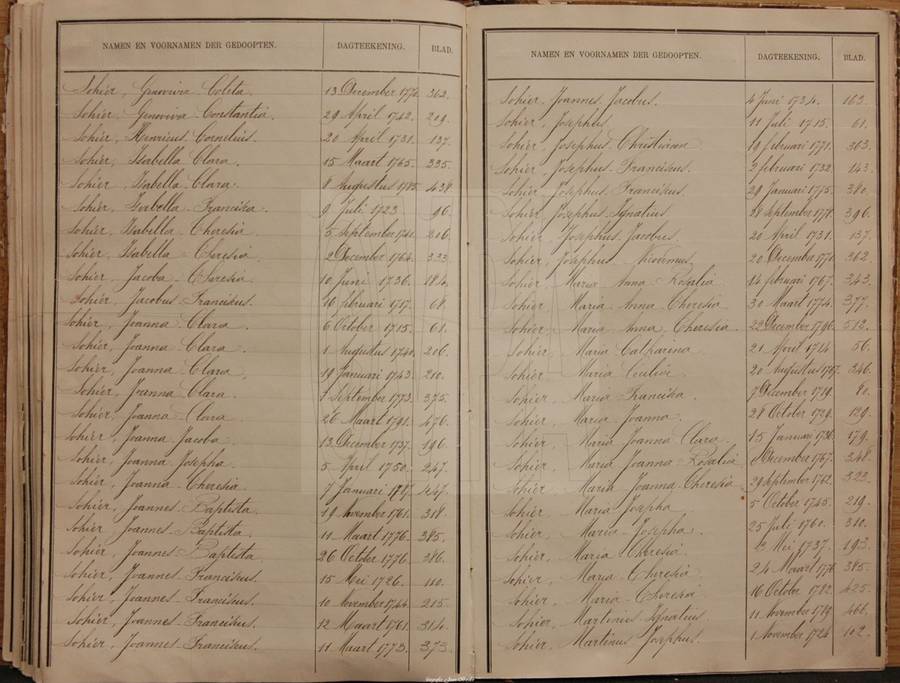 NAMEN EN VOORNAMEN DER GEDOOPTEN. DAGTEEKENING. BLAD.
Sohier, Genoviva Coleta. 13 December 1770. 362.
Sohier, Genoviva Constantia. 29 April 1742. 209.
Sohier, Henricus Cornelius. 20 April 1731. 137.
Sohier, Isabella Clara. 15 Maart 1765. 335.
Sohier, Isabella Clara. 8 Augustus 1785. 438.
Sohier, Isabella Francisca. 9 Juli 1723. 96.
Sohier, Isabella Theresia. 5 September 1741. 206.
Sohier, Isabella Theresia. 2 December 1764. 333.
Sohier, Jacoba Theresia. 10 Juni 1736. 184.
Sohier, Jacobus Franciscus. 16 februari 1717. 68.
Sohier, Joanna Clara. 6 October 1715. 61.
Sohier, Joanna Clara. 1 Augustus 1741. 206.
Sohier, Joanna Clara. 19 Januari 1743. 210.
Sohier, Joanna Clara. 8 September 1773. 375.
Sohier, Joanna Clara. 26 Maart 1791. 476.
Sohier, Joanna Jacoba. 13 December 1737. 196.
Sohier, Joanna Josepha. 5 April 1750. 247.
Sohier, Joanna Theresia. 7 Januari 1787. 447.
Sohier, Joannes Baptista. 19 November 1761. 318.
Sohier, Joannes Baptista. 11 Maart 1776. 385.
Sohier, Joannes Baptista. 26 October 1776. 386.
Sohier, Joannes Franciscus. 15 Mei 1726. 110.
Sohier, Joannes Franciscus. 10 November 1744. 215.
Sohier, Joannes Franciscus. 12 Maart 1761. 314.
Sohier, Joannes Franciscus. 11 Maart 1773. 373.
NAMEN EN VOORNAMEN DER GEDOOPTEN. DAGTEEKENING. BLAD.
Sohier, Joannes Jacobus. 4 Juni 1734. 163.
Sohier, Josephus. 11 Juli 1715. 61.
Sohier, Josephus Christianus 19 februari 1771. 363.
Sohier, Josephus Franciscus. 2 februari 1732. 143.
Sohier, Josephus Franciscus 29 Januari 1775. 380.
Sohier, Josephus Ignatius 28 September 1778. 396.
Sohier, Josephus Jacobus. 20 April 1731. 137.
Sohier, Josephus 20 December 1770. 362.
Sohier, Maria Anna Rosalia 14 februari 1767. 343.
Sohier, Maria Anna Theresia 30 Maart 1774. 377.
Sohier, Maria Anna Theresia 22 December 1796. 512.
Sohier, Maria Catharina 21 April 1714 56.
Sohier, Maria 20 Augustus 346.
Sohier, Maria Francisca 7 December 1719. 80.
Sohier, Maria Joanna. 28 October 1729. 129.
Sohier, Maria Joanna Clara 15 Januari 1736. 179.
Sohier, Maria Joanna Rosalia December 1767. 348.
Sohier, Maria Joanna Theresia. 29 September 1762. 323.
Sohier, Maria Josepha 5 October 1745. 219.
Sohier, Maria Josepha. 25 Juli 1760. 310.
Sohier, Maria Theresia Mei 1737. 193.
Sohier, Maria Theresia 24 Maart 1776. 385.
Sohier, Maria Theresia 16 October 1782. 425.
Sohier, Martinus Ignatius 11 November 1789. 466.
Sohier, Martinus Josephus. 1 November 1724 102.